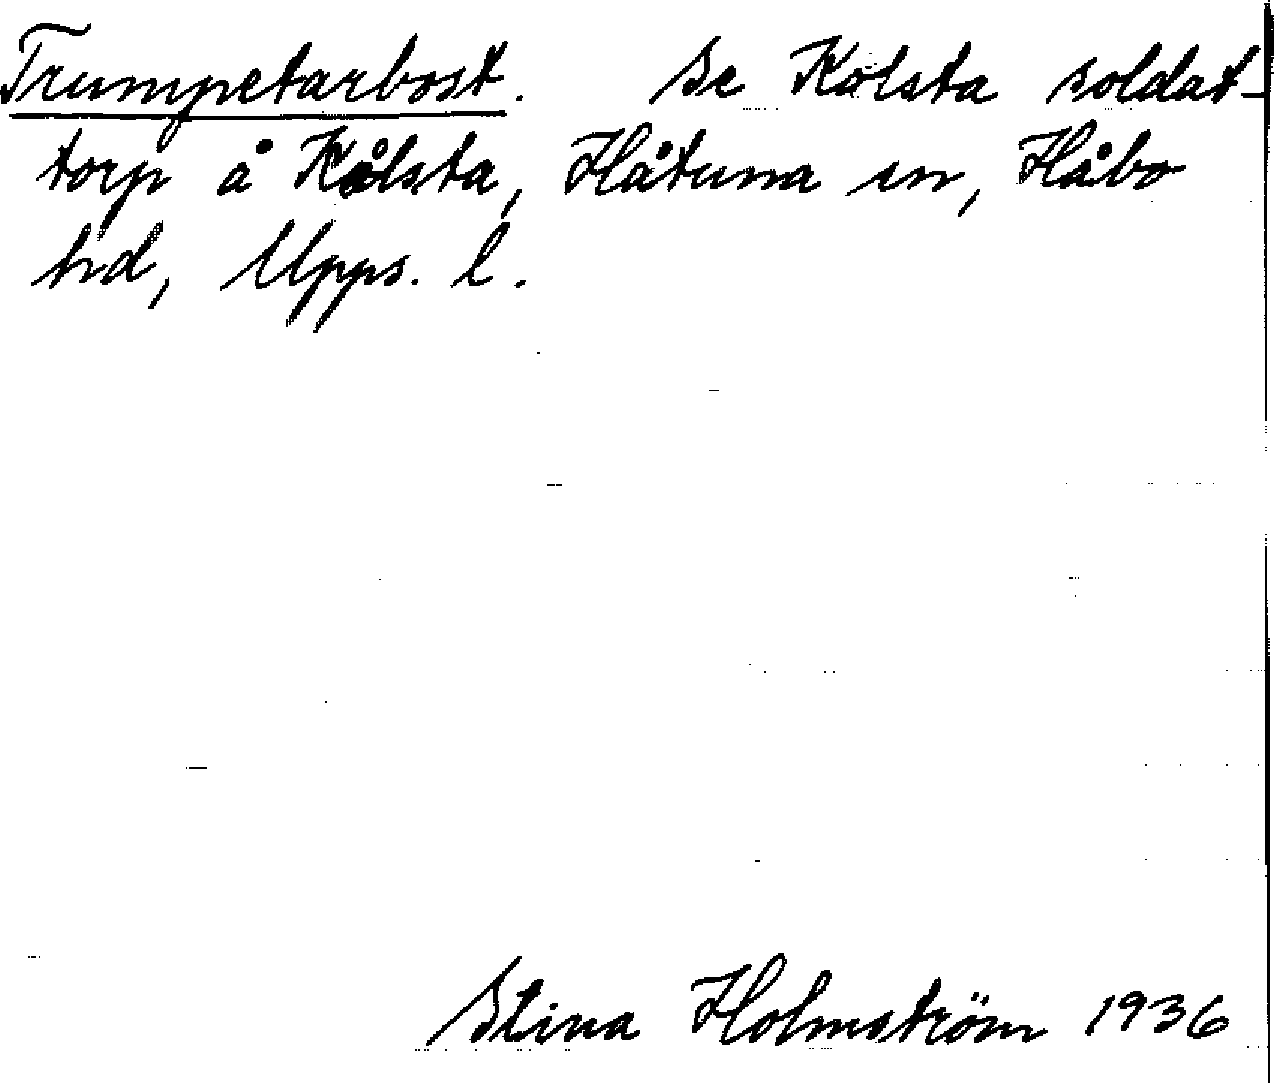 Trumpetarbost. Se Kolsta soldat-
torp å Kålsta, Håtuna sn, Håbo
hd, Upps. l.
Stina Holmström 1936